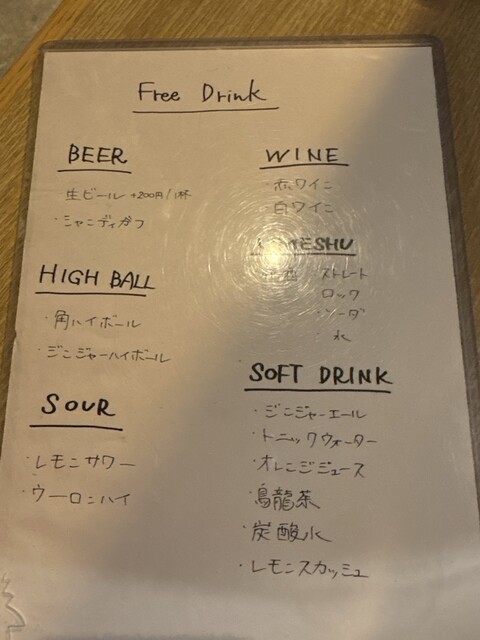 Free Drink
BEER
生ビール +200円/1杯
・シャンディガフ
HIGH BALL
・角ハイボール
・ジンジャーハイボール
SOUR
・レモンサワー
・ウーロンハイ
WINE
・赤ワイン
・白ワイン
UMESHU
ストレート
ロック
・ソーダ
・水
SOFT DRINK
・ジンジャーエール
・トニックウォーター
・オレンジジュース
・烏龍茶
・炭酸水
・レモンスカッシュ